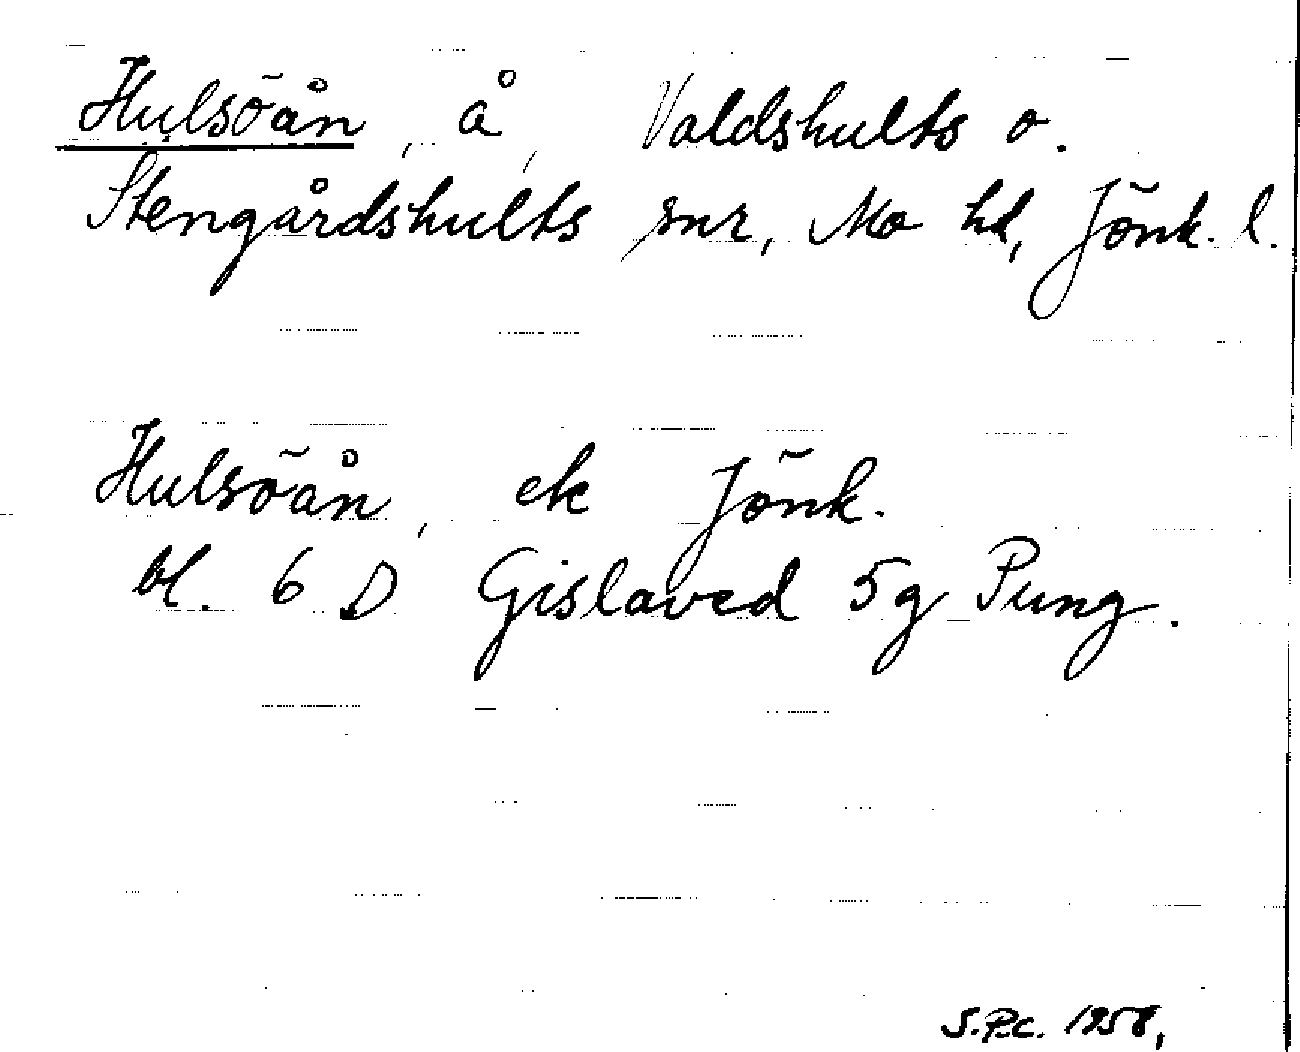 Hulsöån, å, Valdshults o.
Stengårdshults snr, Mo hd, Jönk. l.
Hulsöån, ek Jönk.
bl. 6 D Gislaved 5g Pung.
S.P.c. 1958,